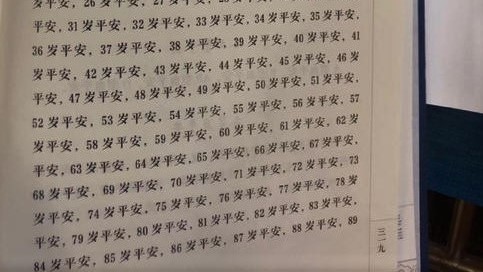 岁平安，26 岁平安，27 岁平安，
平安，31 岁平安，32 岁平安，33 岁平安，34 岁平安，35 岁平安，
36 岁平安，37 岁平安，38 岁平安，39 岁平安，40 岁平安，41
岁平安，42 岁平安，43 岁平安，44 岁平安，45 岁平安，46 岁
平安，47 岁平安，48 岁平安，49 岁平安，50 岁平安，51 岁平安，
52 岁平安，53 岁平安，54 岁平安，55 岁平安，56 岁平安，57
岁平安，58 岁平安，59 岁平安，60 岁平安，61 岁平安，62 岁
平安，63 岁平安，64 岁平安，65 岁平安，66 岁平安，67 岁平安，
68 岁平安，69 岁平安，70 岁平安，71 岁平安，72 岁平安，73
岁平安，74 岁平安，75 岁平安，76 岁平安，77 岁平安，78 岁
平安，79 岁平安，80 岁平安，81 岁平安，82 岁平安，83 岁平安，
84 岁平安，85 岁平安，86 岁平安，87 岁平安，88 岁平安，89
三一九